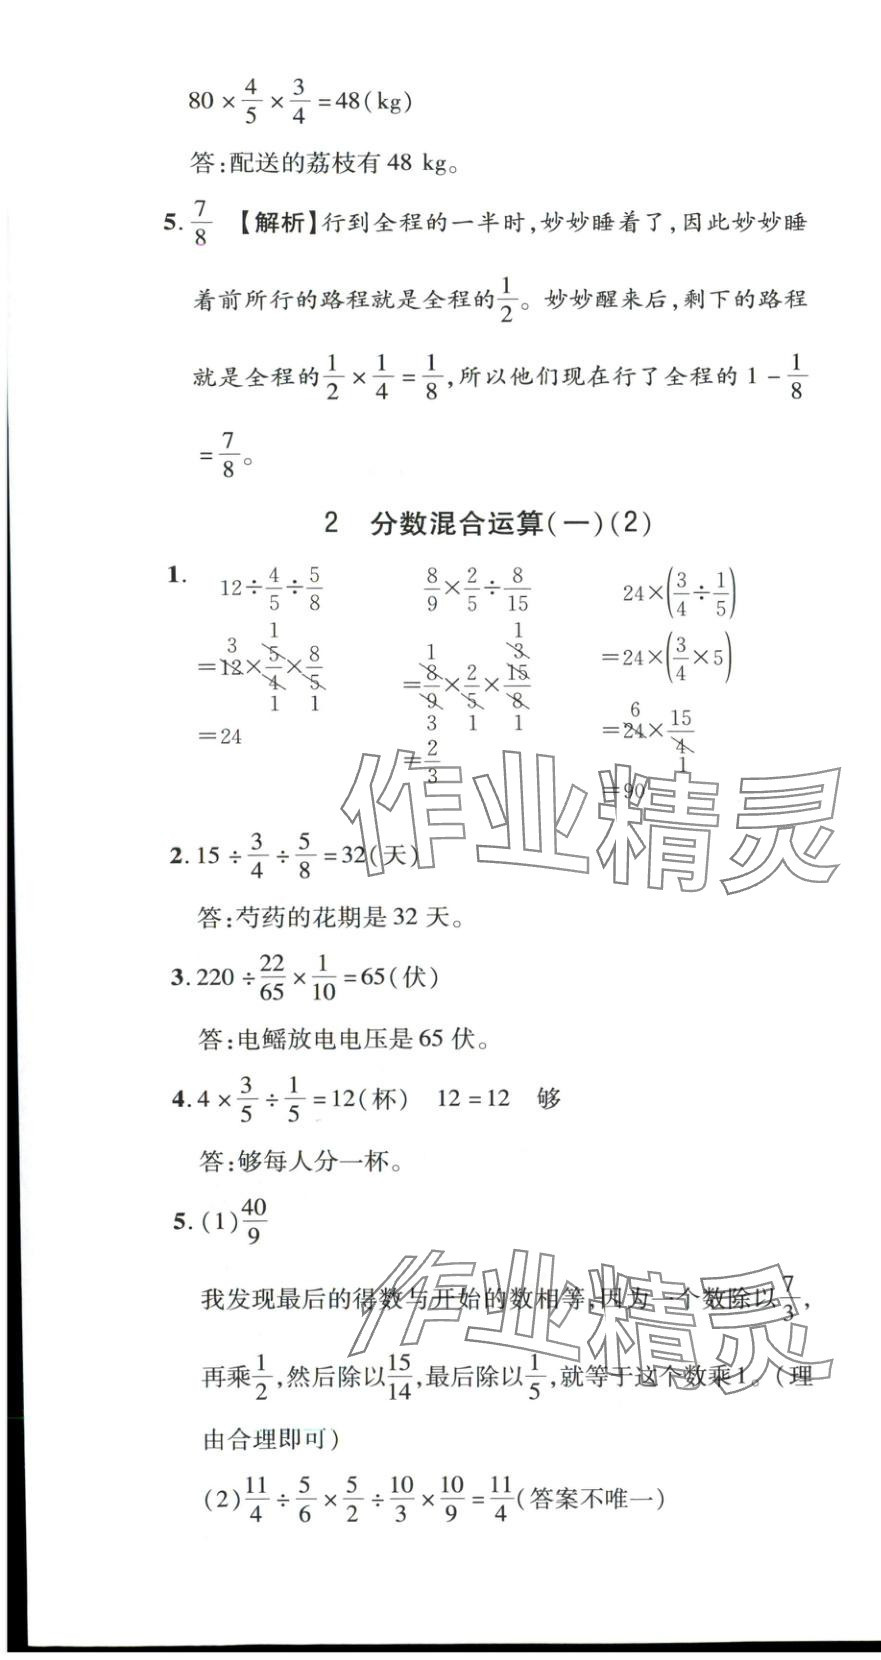 80×4/5×3/4=48(kg)
答:配送的荔枝有48 kg。
5. 7/8 【解析】行到全程的一半时,妙妙睡着了,因此妙妙睡
着前所行的路程就是全程的1/2。妙妙醒来后,剩下的路程
就是全程的1/2×1/4=1/8,所以他们现在行了全程的1-1/8
=7/8。
2 分数混合运算(一)(2)
1. 12÷4/5÷5/8 8/9×2/5÷8/15 24×(3/4÷1/5)
=12×5/4×8/5 =8/9×2/5×15/8 =24×(3/4×5)
=24 =2/3 =24×15/4
=90
2. 15÷3/4÷5/8=32(天)
答:芍药的花期是32天。
3. 220÷22/65×1/10=65(伏)
答:电鳐放电电压是65伏。
4. 4×3/5÷1/5=12(杯) 12=12 够
答:够每人分一杯。
5. (1)40/9
我发现最后的得数与开始的数相等,因为一个数除以7/3,
再乘1/2,然后除以15/14,最后除以1/5,就等于这个数乘1。(理
由合理即可)
(2)11/4÷5/6×5/2÷10/3×10/9=11/4(答案不唯一)
作业精灵
作业精灵